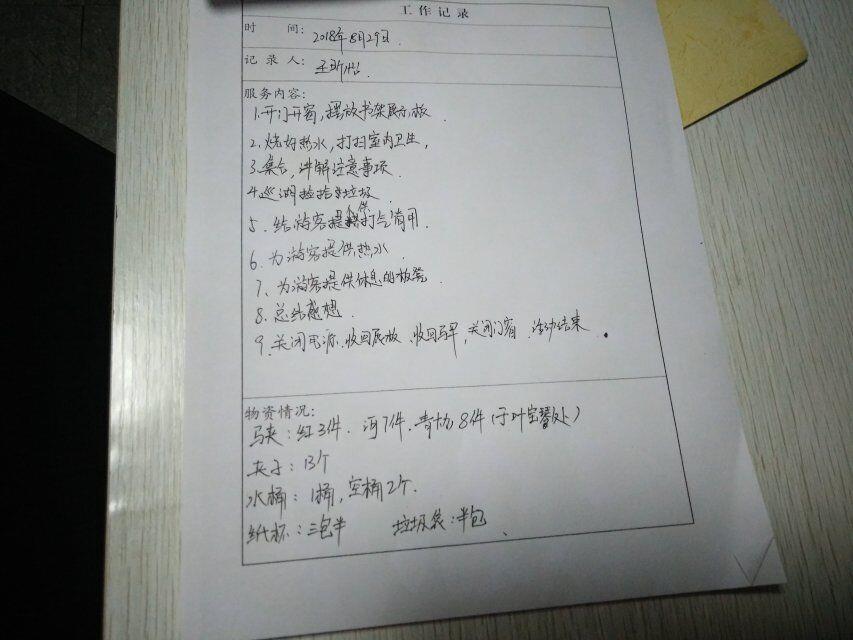 工作记录
时 间：2018年8月29日.
记录人：
服务内容：
1.开门开窗，摆放书架展示板
2.烧好热水，打扫室内卫生，
3.集合，讲解注意事项.
4.巡湖捡拾垃圾
5.给游客提供打气筒用.
6.为游客提供热水.
7、为游客提供休息的板凳.
8.总结感想.
9.关闭电源、收回展板、收回马甲，关闭门窗.活动结束.
物资情况：
马夹：红3件.河7件.青协8件(于叶宝馨处)
夹子：13个
水桶：1桶，空桶2个.
纸杯：三包半 垃圾袋：半包、